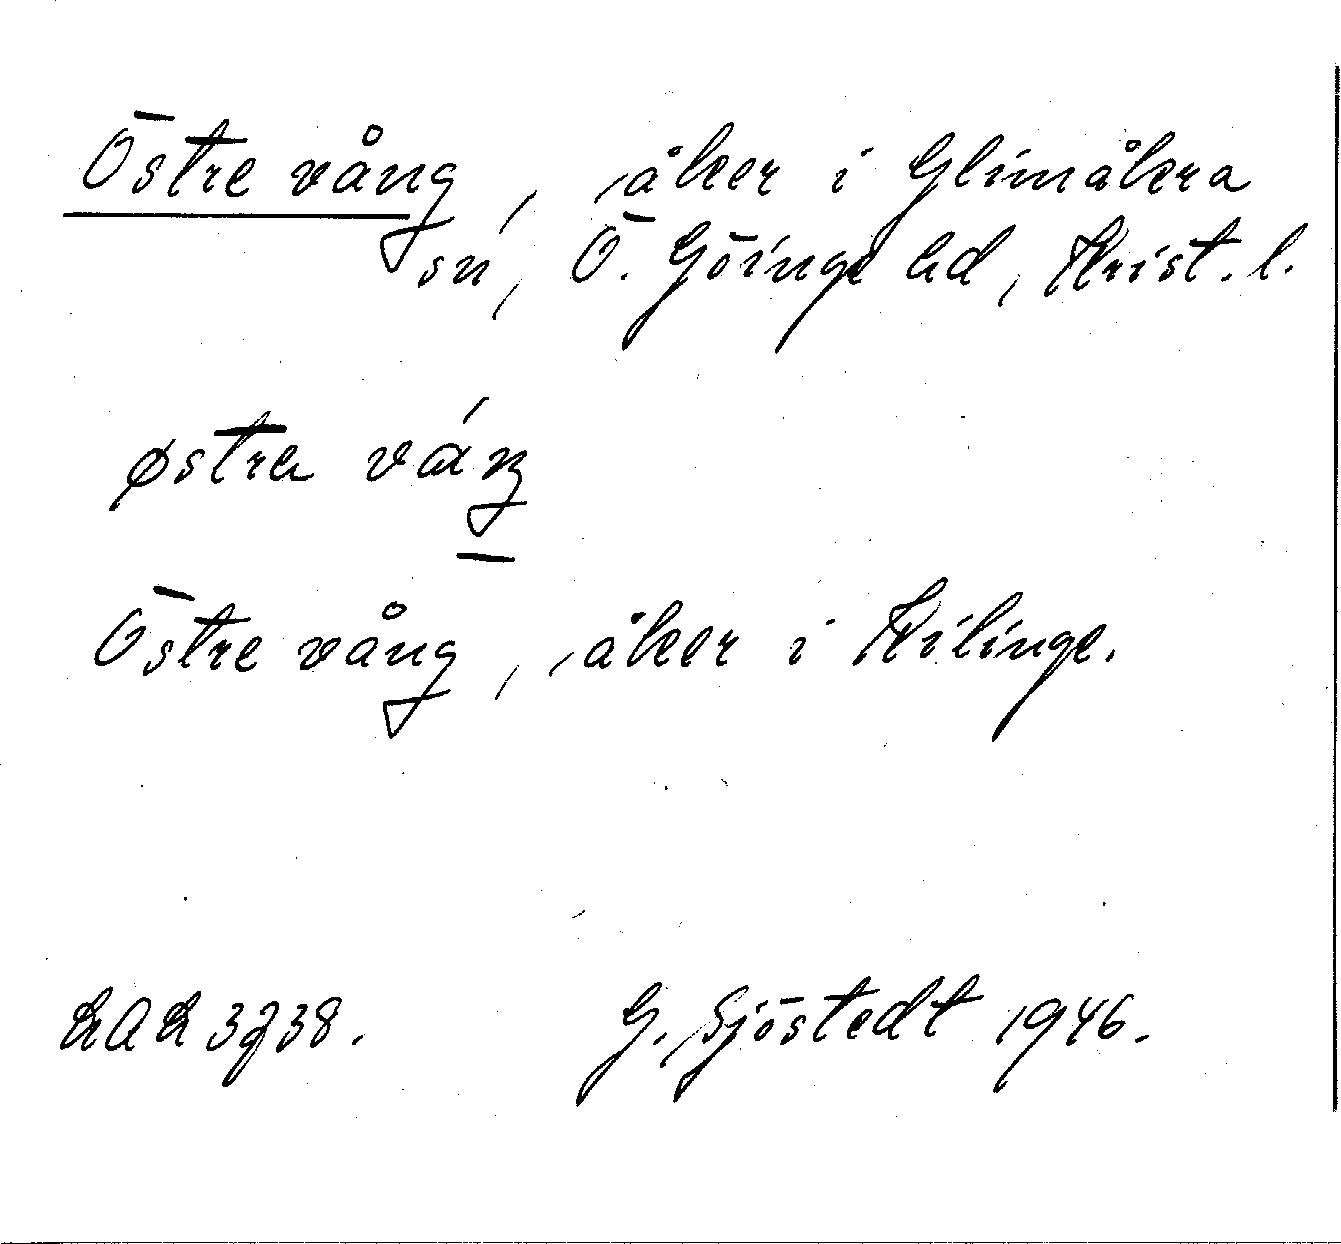 Östre vång, åker i Glimåkra
sn, Ö. Göinge hd, Krist. l.
østra váŋ
Östre vång, åker i Kilinge.
LAL 3738. G. Sjöstedt 1946.